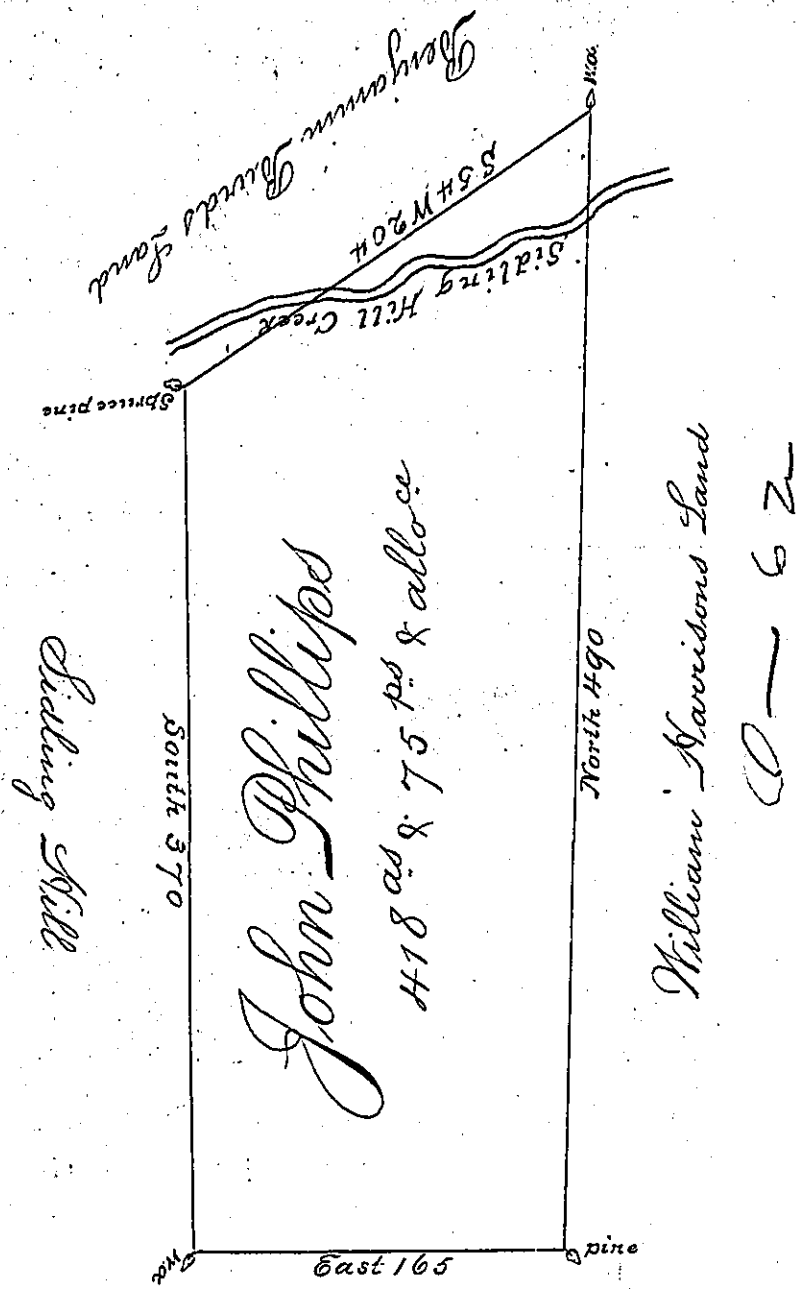 Benjamin Birds Land
w.o.
S54W204
Sidling Hill Creek
Spruce pine
Sidling Hill
South 370
John Phillips
418 as & 75 ps & alloce
North 490
William Harrisons Land
62
w.o.
East 165
pine